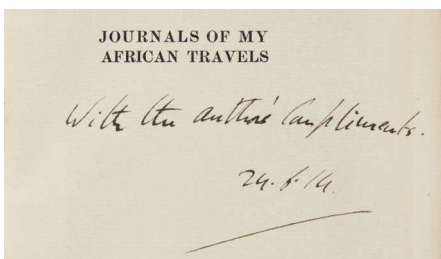 JOURNALS OF MY
AFRICAN TRAVELS
With the author's Compliments.
24.6.14.